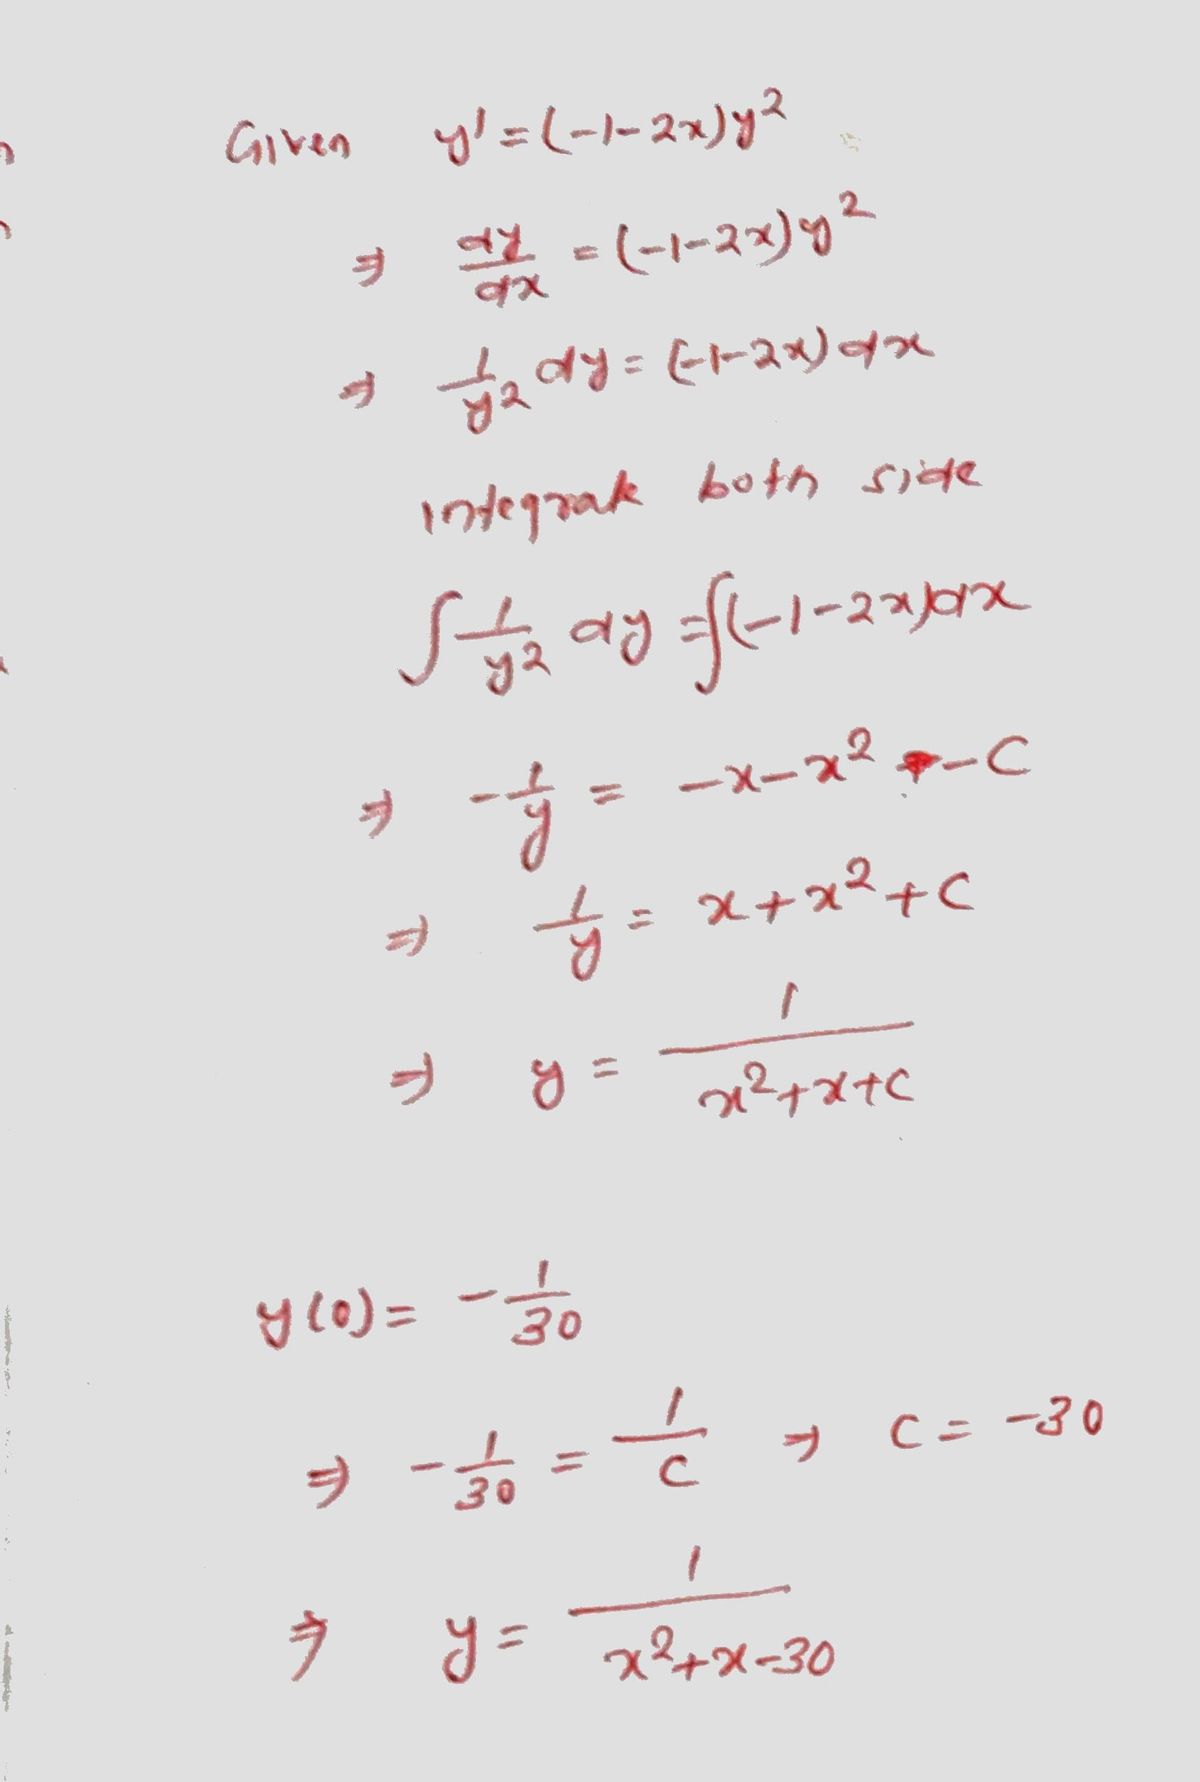 Given y' = (-1-2x)y²
⇒ dy/dx = (-1-2x)y²
⇒ 1/y² dy = (-1-2x)dx
integrate both side
∫ 1/y² dy = ∫(-1-2x)dx
⇒ -1/y = -x-x² -C
⇒ 1/y = x+x²+C
⇒ y = 1/(x²+x+C)
y(0) = -1/30
⇒ -1/30 = 1/C ⇒ C = -30
⇒ y = 1/(x²+x-30)